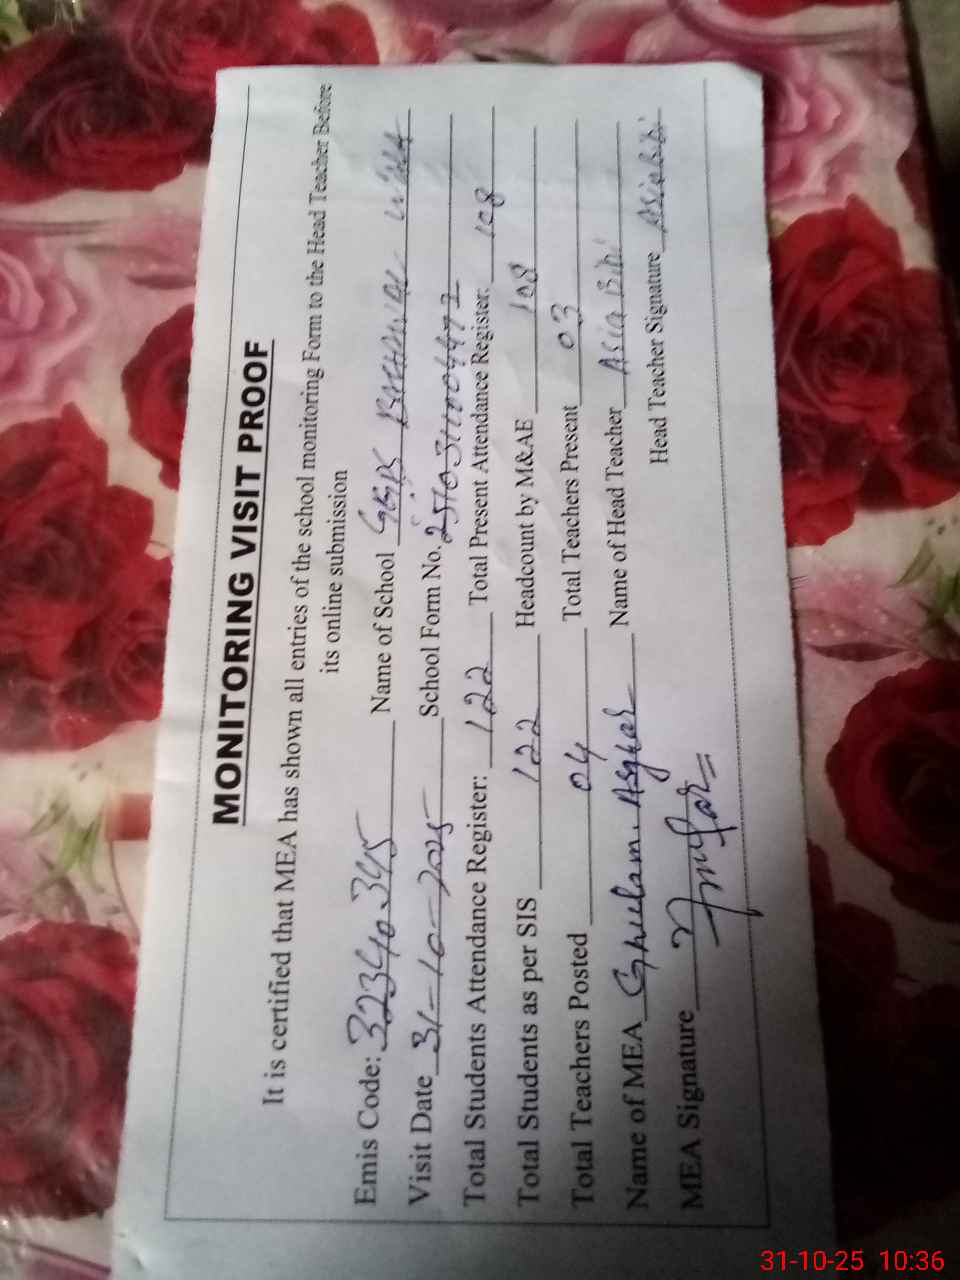 MONITORING VISIT PROOF
It is certified that MEA has shown all entries of the school monitoring Form to the Head Teacher Before
its online submission
Emis Code: 32340345 Name of School GGPS
Visit Date 31-10-2025 School Form No.
Total Students Attendance Register: 122 Total Present Attendance Register: 108
Total Students as per SIS 122 Headcount by M&AE 108
Total Teachers Posted 04 Total Teachers Present 03
Name of MEA Ghulam Asghar Name of Head Teacher Asia Bibi
MEA Signature Head Teacher Signature Asia bibi
31-10-25 10:36